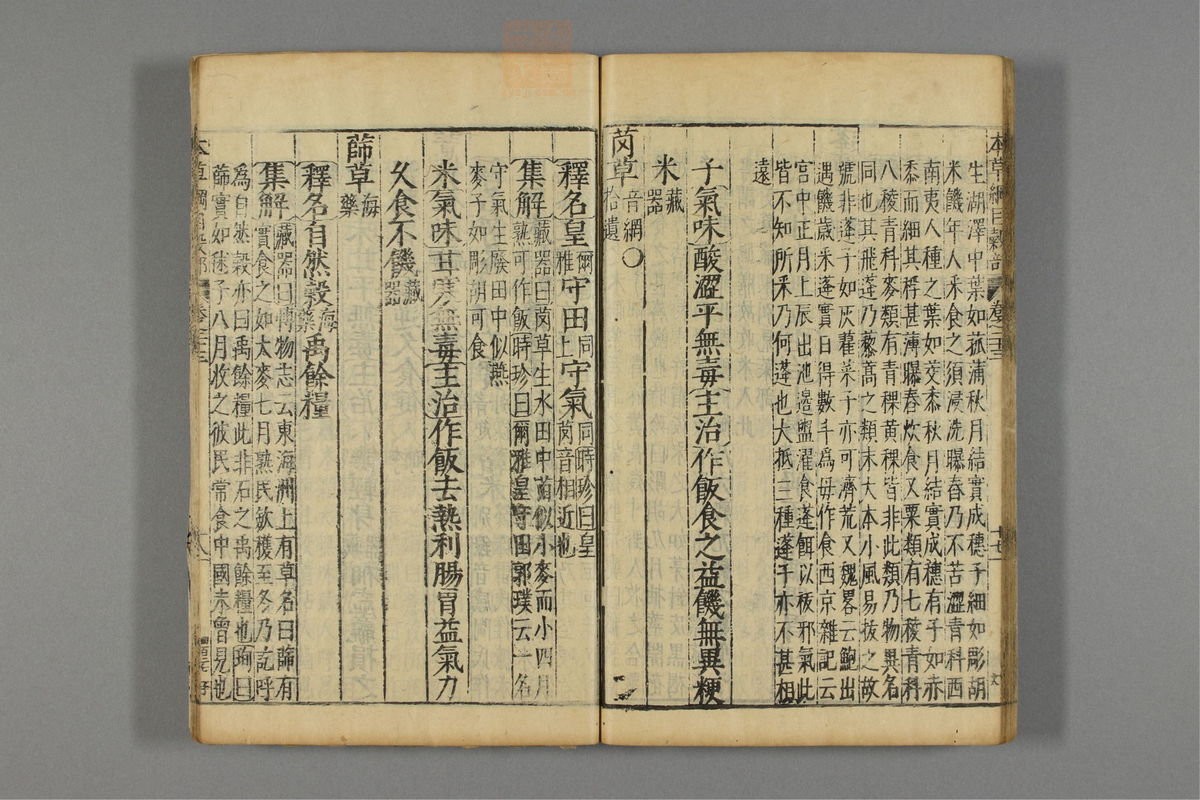 本草綱目穀部 卷二十三 十七
生湖澤中葉如菰蒲秋月結實成穗子細如彫胡
米饑年人采食之須浸洗曝舂乃不苦澀青科西
南夷人種之葉如茭黍秋月結實成穗有子如赤
黍而細其稃甚薄曝舂炊食又粟類有七稜青科
八稜青科麥類有青稞黃稞皆非此類乃物異名
同也其飛蓬乃藜蒿之類末大本小風易拔之故
號飛蓬子如灰藋菜子亦可濟荒又魏畧云鮑出
遇饑歲采蓬實日得數斗爲母作食西京雜記云
宮中正月上辰出池邊盥濯食蓬餌以祓邪氣此
皆不知所采乃何蓬也大抵三種蓬子亦不甚相
遠
子氣味酸澀平無毒主治作飯食之益饑無異粳
米藏器
䒽草音網拾遺
釋名皇爾雅守田同上守氣同時珍曰皇䒽音相近也
集解藏器曰䒽草生水田中苗似小麥而小四月
熟可作飯時珍曰爾雅皇守田郭璞云一名
守氣生廢田中似燕
麥子如彫胡可食
米氣味甘寒無毒主治作飯去熱利腸胃益氣力
久食不饑藏器
蒒草海藥
釋名自然穀海藥禹餘糧
集解藏器曰博物志云東海洲上有草名曰蒒有
實食之如大麥七月熟民斂穫至冬乃訖呼
為自然穀亦曰禹餘糧此非石之禹餘糧也珣曰
蒒實如毬子八月收之彼民常食中國未曾見也
本草綱目穀部 卷二十三 十八